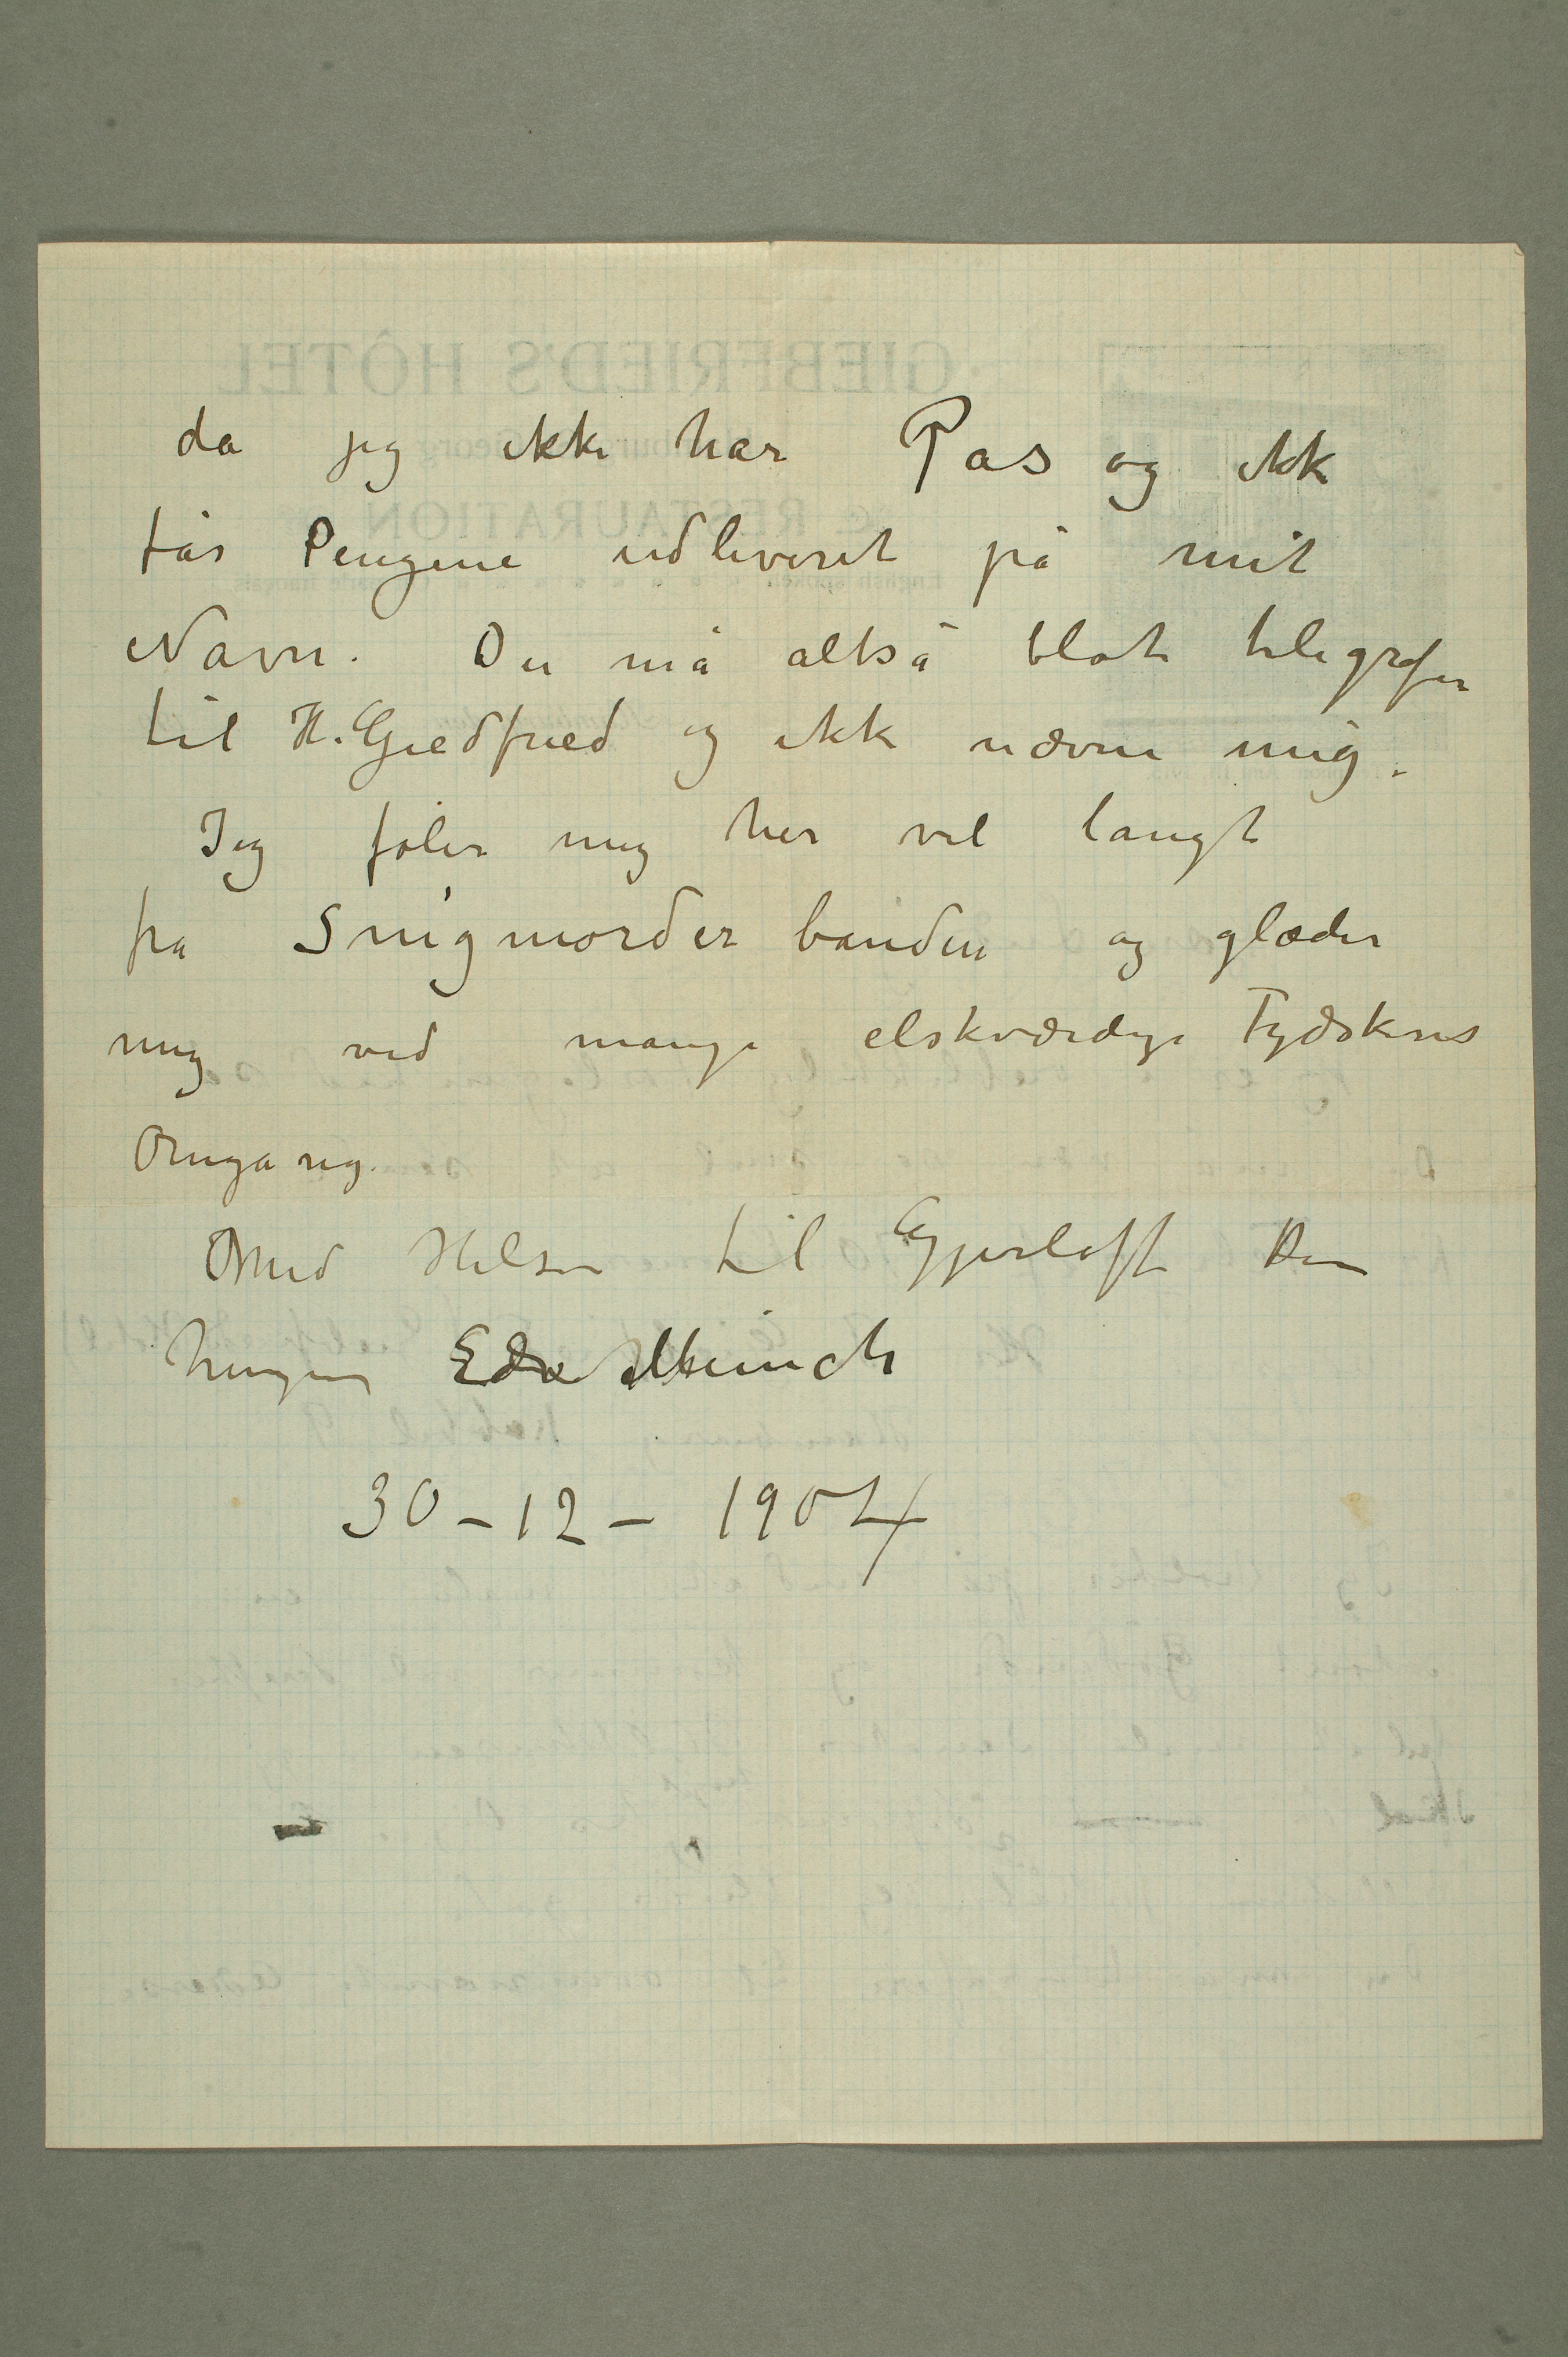 da jeg ikke har Pas og ikk
får Pengene udleveret på mit
Navn. Du må altså blot telegrafer
til H. Giedfried og ikk nævne mig.
Jeg føler mig her vel langt
fra Snigmorder banden og glæder
mig ved mange elskværdige Tydskeres
Omgang.
Med Hilsen til Gjerløff Din
hengivne Edv Munch
30-12-1904